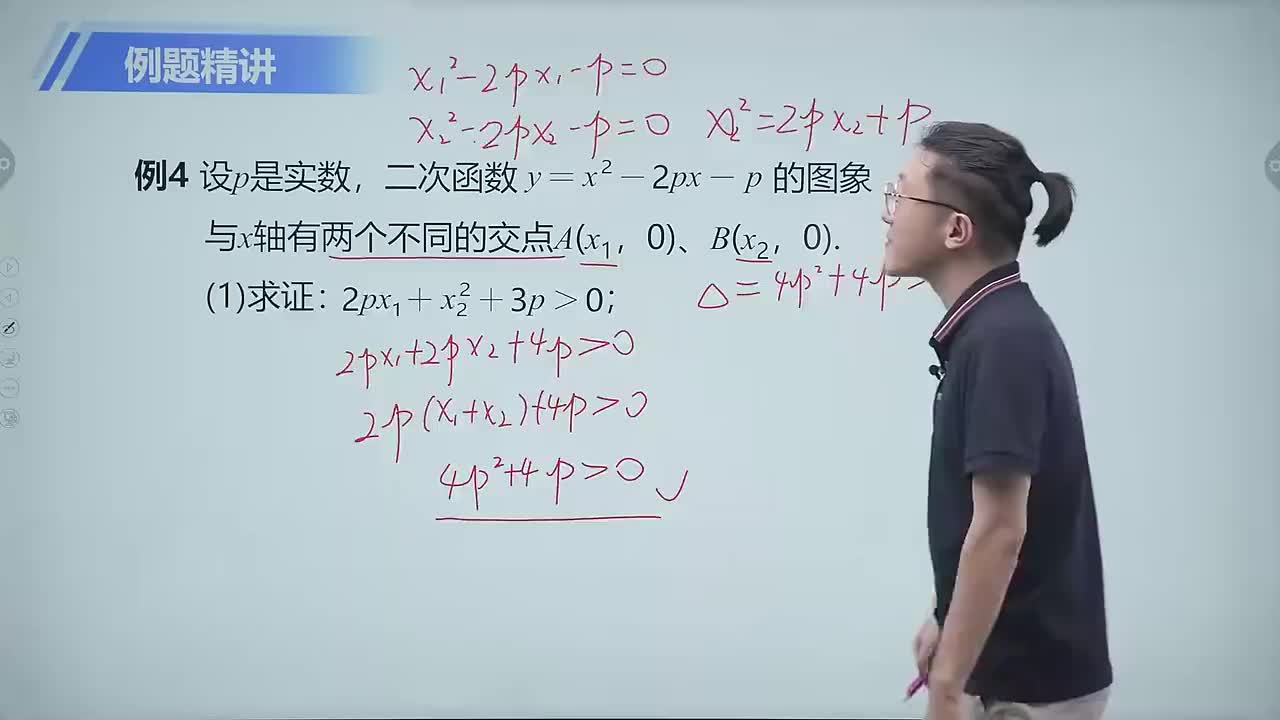 例题精讲
x₁²-2px₁-p=0
x₂²-2px₂-p=0 x₂²=2px₂+p
例4 设p是实数，二次函数 y＝x²－2px－p 的图象
与x轴有两个不同的交点A(x₁，0)、B(x₂，0).
(1)求证：2px₁＋x₂²＋3p＞0；
△=4p²+4p>
2px₁+2px₂+4p>0
2p(x₁+x₂)+4p>0
4p²+4p>0 ✓